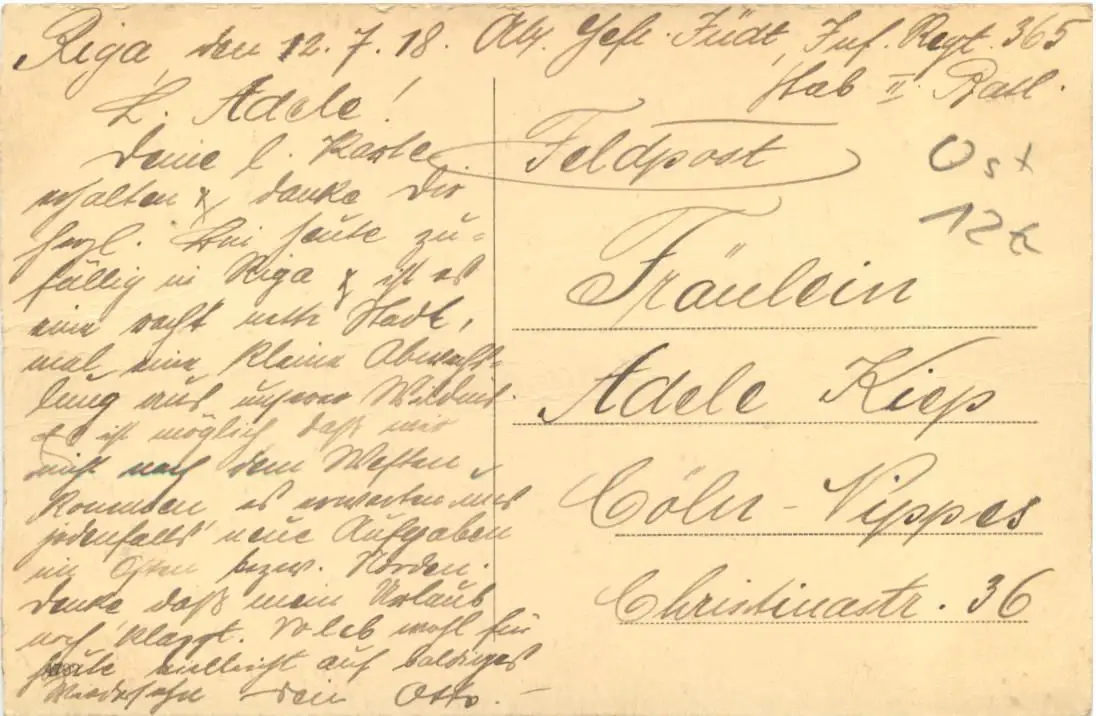 Riga, den 12.7.18. Abs. Gefr. Jüdt, Inf. Regt. 365
Stab II. Batl.
L. Adele!
Deine l. Karte
erhalten & danke Dir
herzl. Bin heute zu=
fällig in Riga & ist es
eine recht nette Stadt,
mal eine kleine Abwechs=
lung aus unserer Wildnis.
Es ist möglich daß wir
nicht nach dem Westen
kommen es erwarten uns
jedenfalls neue Aufgaben
im Osten bezw. Norden.
Denke daß mein Urlaub
noch klappt. So leb wohl für
heute vielleicht auf baldiges
Wiedersehn dein Otto.
Feldpost
Ost
Fräulein
Adele Kiep
Cöln-Nippes
Christinastr. 36